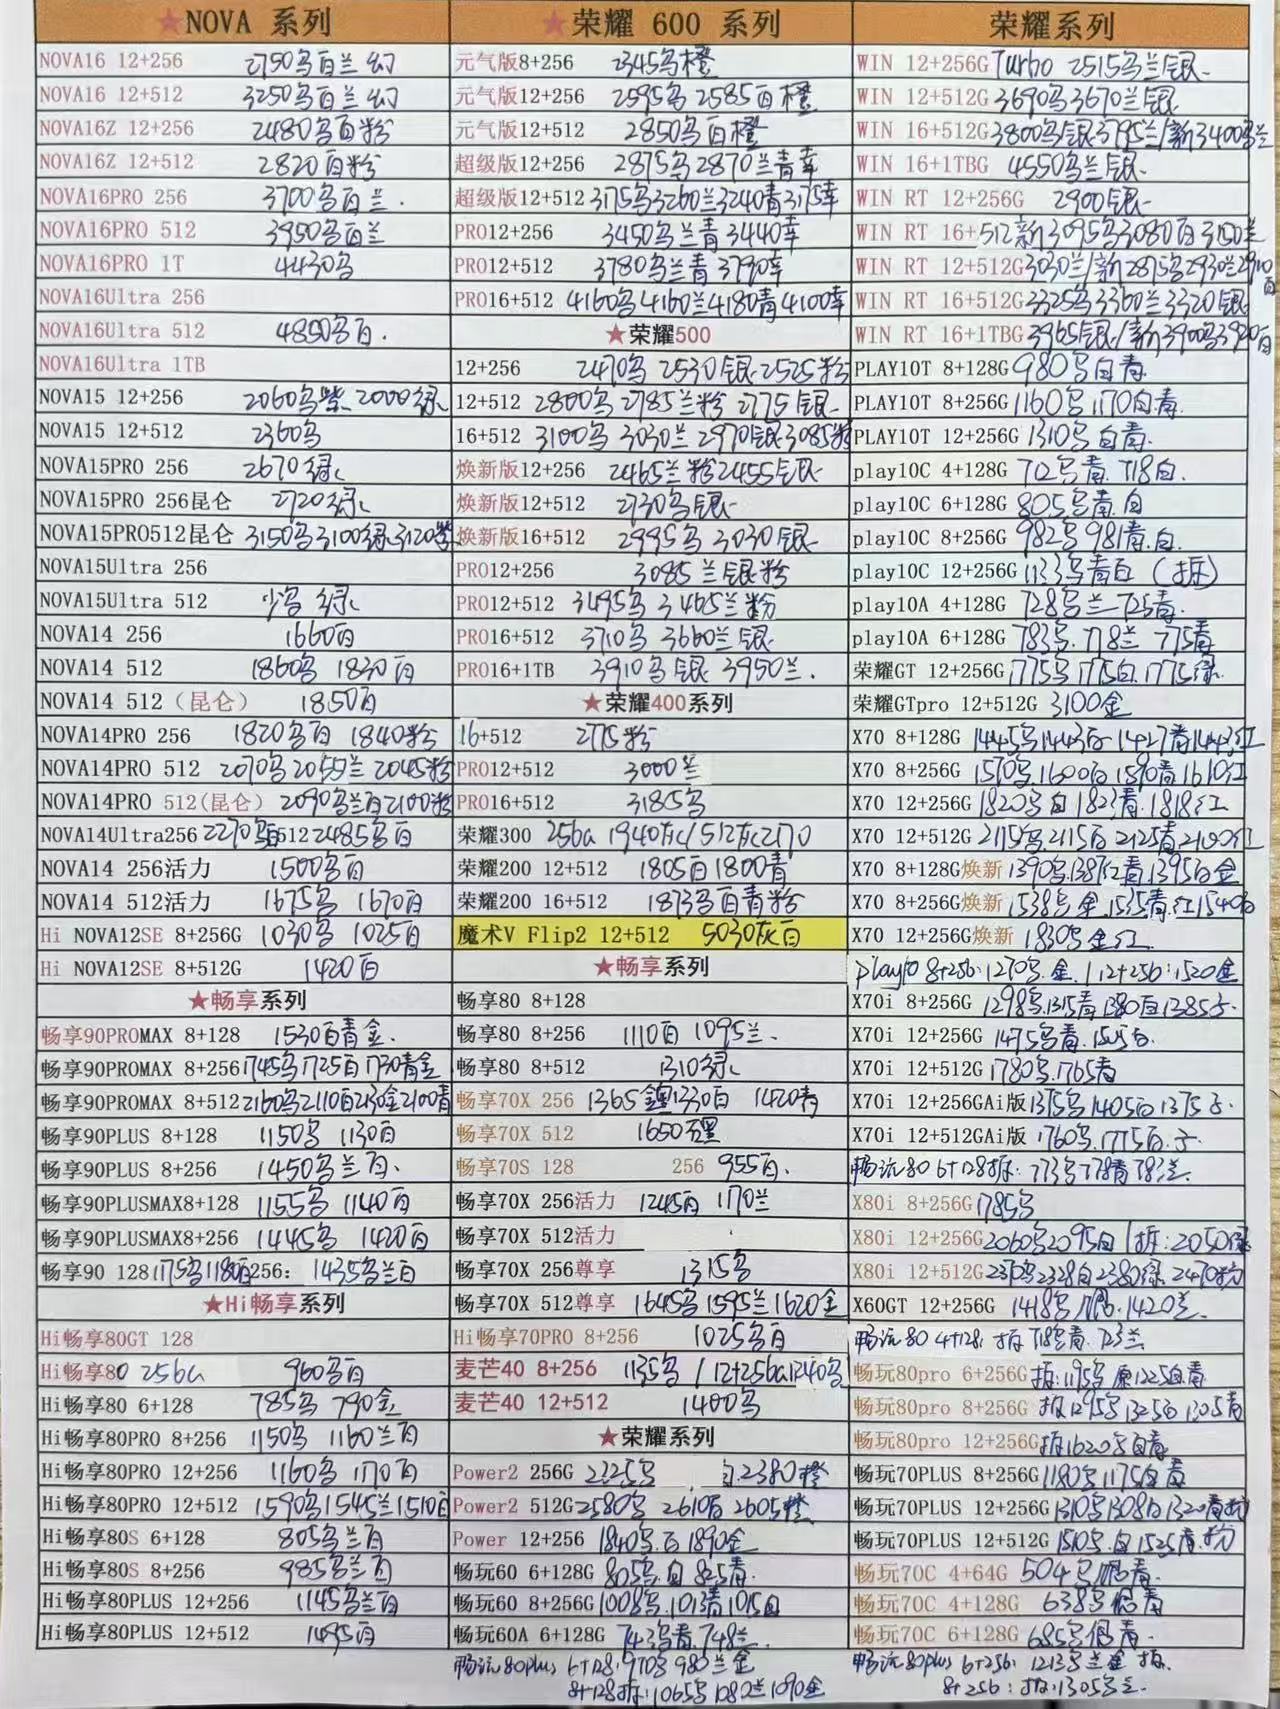 ★NOVA 系列
NOVA16 12+256 2750乌白兰幻
NOVA16 12+512 3250乌白兰幻
NOVA16Z 12+256 2480乌白粉
NOVA16Z 12+512 2820白粉
NOVA16PRO 256 3700乌白兰.
NOVA16PRO 512 3950乌白兰
NOVA16PRO 1T 4430乌
NOVA16Ultra 256
NOVA16Ultra 512 4850乌白.
NOVA16Ultra 1TB
NOVA15 12+256 2060乌紫 2000绿
NOVA15 12+512 2360乌
NOVA15PRO 256 2670绿
NOVA15PRO 256昆仑 2720绿
NOVA15PRO512昆仑 3150乌3100绿3120紫
NOVA15Ultra 256
NOVA15Ultra 512 少乌 绿
NOVA14 256 1660白
NOVA14 512 1860乌 1830白
NOVA14 512（昆仑） 1850白
NOVA14PRO 256 1820乌白 1840粉
NOVA14PRO 512 2070乌 2055兰 2045粉
NOVA14PRO 512(昆仑) 2090乌兰白2100粉
NOVA14Ultra256 2270乌白512 2485乌白
NOVA14 256活力 1500乌白
NOVA14 512活力 1675乌 1670白
Hi NOVA12SE 8+256G 1030乌 1025白
Hi NOVA12SE 8+512G 1420白
★畅享系列
畅享90PROMAX 8+128 1530白青金.
畅享90PROMAX 8+256 1745乌1725白1730青金
畅享90PROMAX 8+512 2160乌2110白2130金2100青
畅享90PLUS 8+128 1150乌 1130白
畅享90PLUS 8+256 1450乌兰白.
畅享90PLUSMAX8+128 1155乌 1140白
畅享90PLUSMAX8+256 1445乌 1420白
畅享90 128:1175乌1180白256: 1435乌兰白
★Hi畅享系列
Hi畅享80GT 128
Hi畅享80 256G 960乌白
Hi畅享80 6+128 785乌 790金
Hi畅享80PRO 8+256 1150乌 1160兰白
Hi畅享80PRO 12+256 1160乌 1170白
Hi畅享80PRO 12+512 1590乌1545兰1510白
Hi畅享80S 6+128 805乌兰白
Hi畅享80S 8+256 985乌兰白
Hi畅享80PLUS 12+256 1145乌兰白
Hi畅享80PLUS 12+512 1495白
★荣耀 600 系列
元气版8+256 2345乌橙
元气版12+256 2595乌 2585白橙
元气版12+512 2850乌白橙
超级版12+256 2875乌2870兰青幸
超级版12+512 3175乌3260兰3240青3175幸
PRO12+256 3450乌兰青 3440幸
PRO12+512 3780乌兰青 3790幸
PRO16+512 4160乌4160兰4180青4100幸
★荣耀500
12+256 2470乌 2530银 2525粉
12+512 2800乌 2785兰粉 2775银
16+512 3100乌 3030兰 2970银3085粉
焕新版12+256 2465兰粉2455银
焕新版12+512 2730乌银
焕新版16+512 2995乌 3030银
PRO12+256 3085兰银粉
PRO12+512 3495乌 3465兰粉
PRO16+512 3710乌 3660兰银
PRO16+1TB 3910乌银 3950兰.
★荣耀400系列
16+512 2775粉
PRO12+512 3000兰
PRO16+512 3185乌
荣耀300 256G 1940灰/512灰2170
荣耀200 12+512 1805白1800青
荣耀200 16+512 1873乌白青粉
魔术V Flip2 12+512 5030灰白
★畅享系列
畅享80 8+128
畅享80 8+256 1110白 1095兰.
畅享80 8+512 1310绿
畅享70X 256 1365 1330白 1420青
畅享70X 512 1650黑
畅享70S 128 256 955白.
畅享70X 256活力 1245白 1170兰
畅享70X 512活力
畅享70X 256尊享 1315乌
畅享70X 512尊享 1645乌1595兰1620金
Hi畅享70PRO 8+256 1025乌白
麦芒40 8+256 1135乌 / 12+256G1240乌
麦芒40 12+512 1400乌
★荣耀系列
Power2 256G 2225乌 白.2380橙
Power2 512G 2580乌 2610白 2605橙
Power 12+256 1840乌.白 1890金
畅玩60 6+128G 805乌.白 825青.
畅玩60 8+256G 1008乌.1013青1015白
畅玩60A 6+128G 743乌青.748兰.
畅玩80plus 6+128:970乌 980兰金
8+128拆:1065乌1080兰1090金
荣耀系列
WIN 12+256G Turbo 2515乌兰银
WIN 12+512G 3690乌3670兰银
WIN 16+512G 3800乌/银3795兰/新3400乌兰
WIN 16+1TBG 4550乌兰银.
WIN RT 12+256G 2900银
WIN RT 16+512新3095乌3080白3150兰
WIN RT 12+512G 3030兰/新2875乌2930兰2910白
WIN RT 16+512G 3325乌3360兰3320银
WIN RT 16+1TBG 3965银/新3900乌3920白
PLAY10T 8+128G 980乌白青
PLAY10T 8+256G 1160乌.1170白青.
PLAY10T 12+256G 1310乌 白青.
play10C 4+128G 712乌青.718白.
play10C 6+128G 805乌青.白
play10C 8+256G 982乌 981青.白.
play10C 12+256G 1133乌青白（拆）
play10A 4+128G 728乌兰 725青.
play10A 6+128G 783乌.778兰 775青
荣耀GT 12+256G 1775乌 1775白.1775绿.
荣耀GTpro 12+512G 3100金
X70 8+128G 1445乌1443白 1427青1443红
X70 8+256G 1570乌.1600白 1590青1610红
X70 12+256G 1820乌白 1823青.1818红
X70 12+512G 2115乌.2115白 2125青2100红
X70 8+128G焕新 1390乌.1387红青.1395白金
X70 8+256G焕新 1538乌金.1535青.红1540白
X70 12+256G焕新 1830乌金红.
play70 8+256:1270乌.金./12+256:1520金
X70i 8+256G 1298乌.1315青1380白1385子.
X70i 12+256G 1475乌青.1505白.
X70i 12+512G 1780乌.1765青
X70i 12+256GAi版 1375乌 1405白 1375子.
X70i 12+512GAi版 1760乌.1775白.子.
畅玩80 6+128拆:773乌778青 783兰.
X80i 8+256G 1785乌
X80i 12+256G 2060乌2095白/拆:2050绿
X80i 12+512G 2370乌2328白2380绿.2470粉
X60GT 12+256G 1418乌 1420兰.
畅玩80 4+128:拆 718乌青.723兰
畅玩80pro 6+256G 拆:1195乌 原1225白青
畅玩80pro 8+256G 拆1295乌 1325白 1305青
畅玩80pro 12+256G 拆1620乌白青
畅玩70PLUS 8+256G 1180乌1175白青
畅玩70PLUS 12+256G 1310乌1308白1320青粉
畅玩70PLUS 12+512G 1510乌.白1525青.粉
畅玩70C 4+64G 504乌 青.
畅玩70C 4+128G 638乌 青
畅玩70C 6+128G 685乌 青.
畅玩80plus 6+256:1213乌兰金 拆.
8+256:拆:1305乌兰.